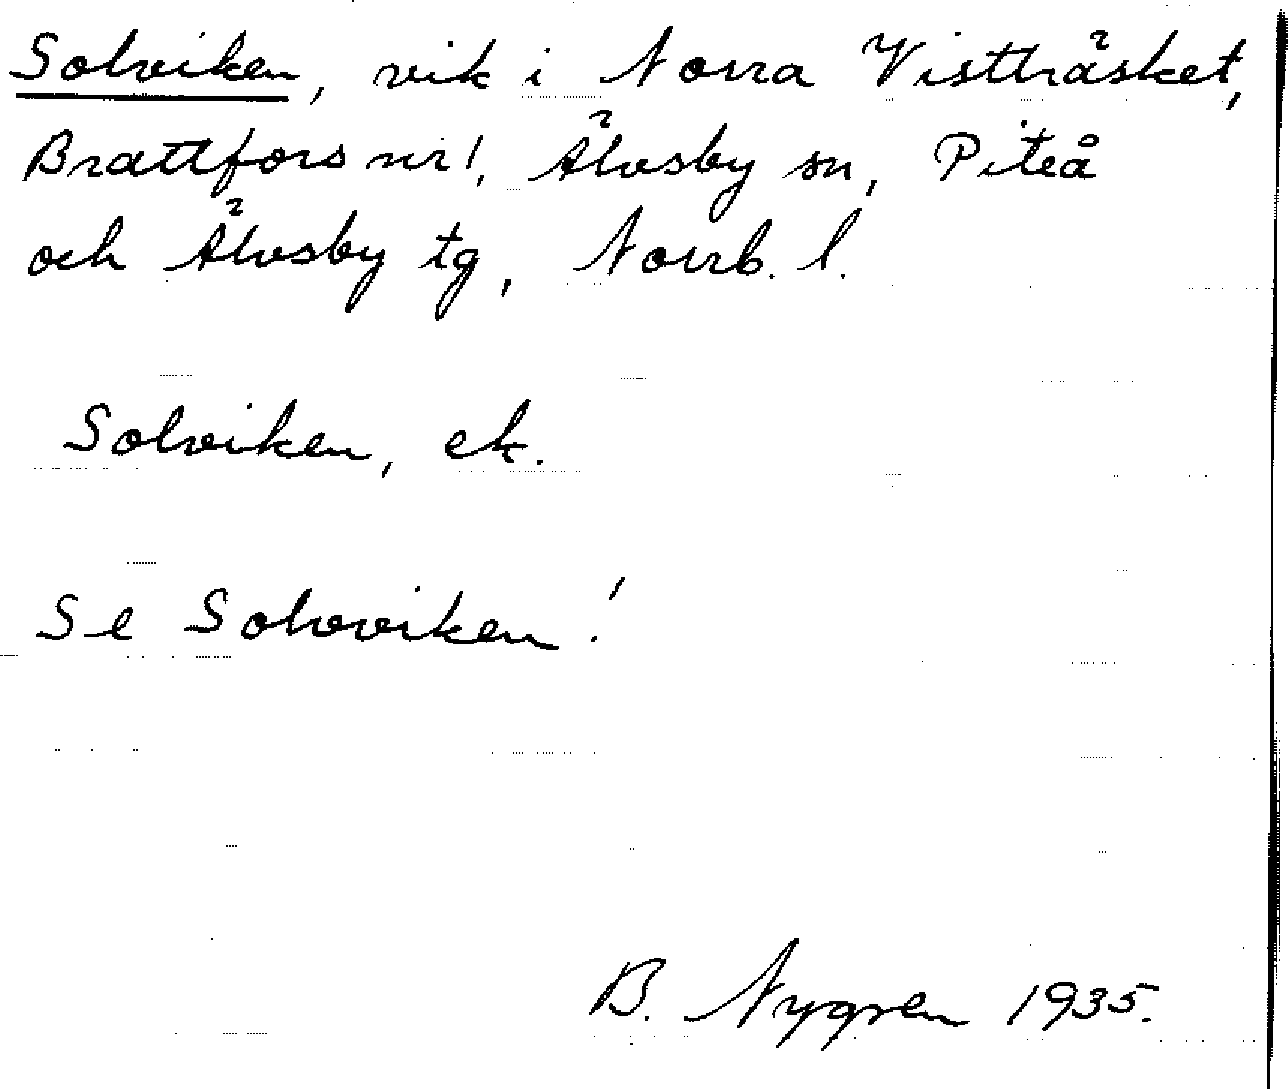 Solviken, vik i Norra Vistträsket,
Brattfors nr 1, Älvsby sn, Piteå
och Älvsby tg, Norrb. l.
Solviken, ek.
Se Solvviken!
B. Nygren 1935.